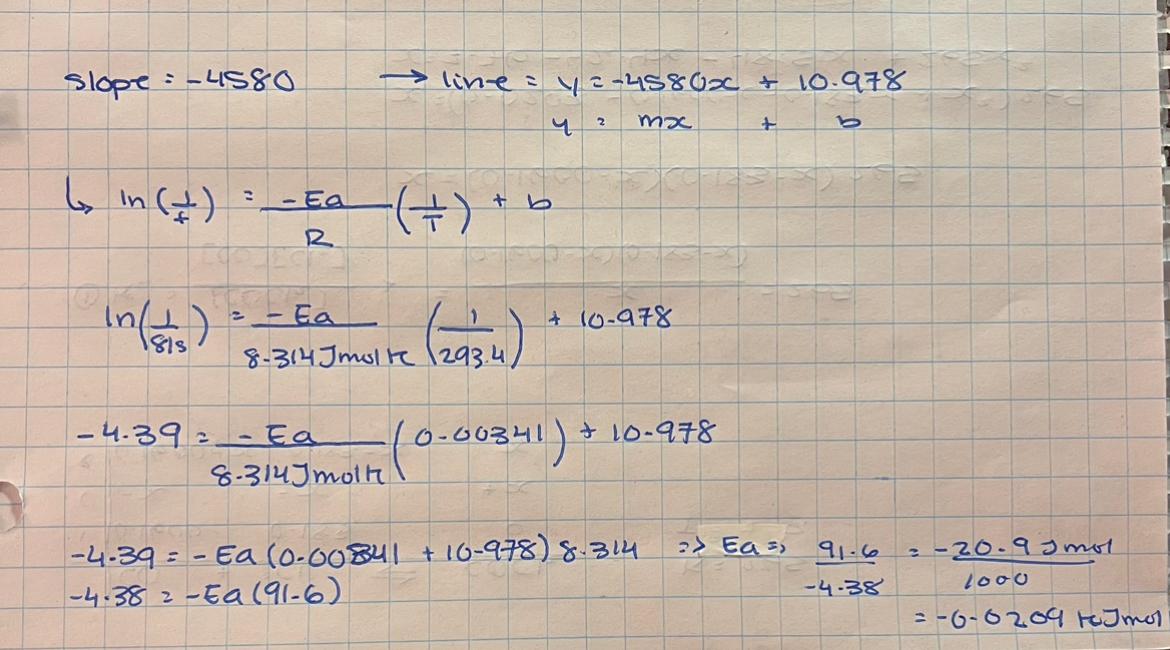 slope = -4580 → line = y = -4580x + 10.978
y = mx + b
↳ ln(1/t) = -Ea/R (1/T) + b
ln(1/81s) = -Ea/8.314 Jmol K (1/293.4) + 10.978
-4.39 = -Ea/8.314 Jmol K (0.00341) + 10.978
-4.39 = -Ea (0.00341 + 10.978) 8.314 => Ea => 91.6/-4.38 = -20.9 Jmol/1000
-4.38 = -Ea (91.6)
= -0.0209 KJmol